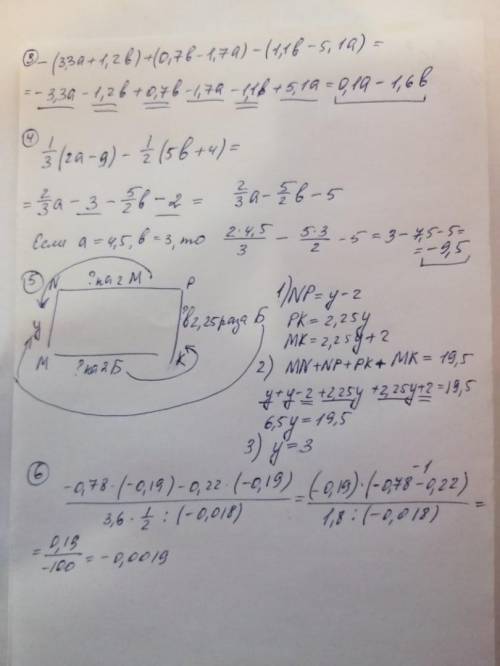 ③ -(3,3a+1,2в)+(0,7в-1,7a)-(1,1в-5,1a)=
=-3,3a-1,2в+0,7в-1,7a-1,1в+5,1a=0,1a-1,6в
④ 1/3(2a-9)-1/2(5в+4)=
=2/3a-3-5/2в-2= 2/3a-5/2в-5
Если a=4,5, в=3, то 2·4,5/3 - 5·3/2 -5=3-7,5-5=
=-9,5
⑤ N ? на 2 М P
y
? в 2,25 раза Б
M ? на 2 Б K
1) NP=y-2
PK=2,25y
MK=2,25y+2
2) MN+NP+PK+MK=19,5
y+y-2+2,25y+2,25y+2=19,5
6,5y=19,5
3) y=3
⑥ -0,78·(-0,19)-0,22·(-0,19)/3,6·1/2:(-0,018)=(-0,19)·(-0,78-0,22)/1,8:(-0,018)=
-1
=0,19/-100=-0,0019